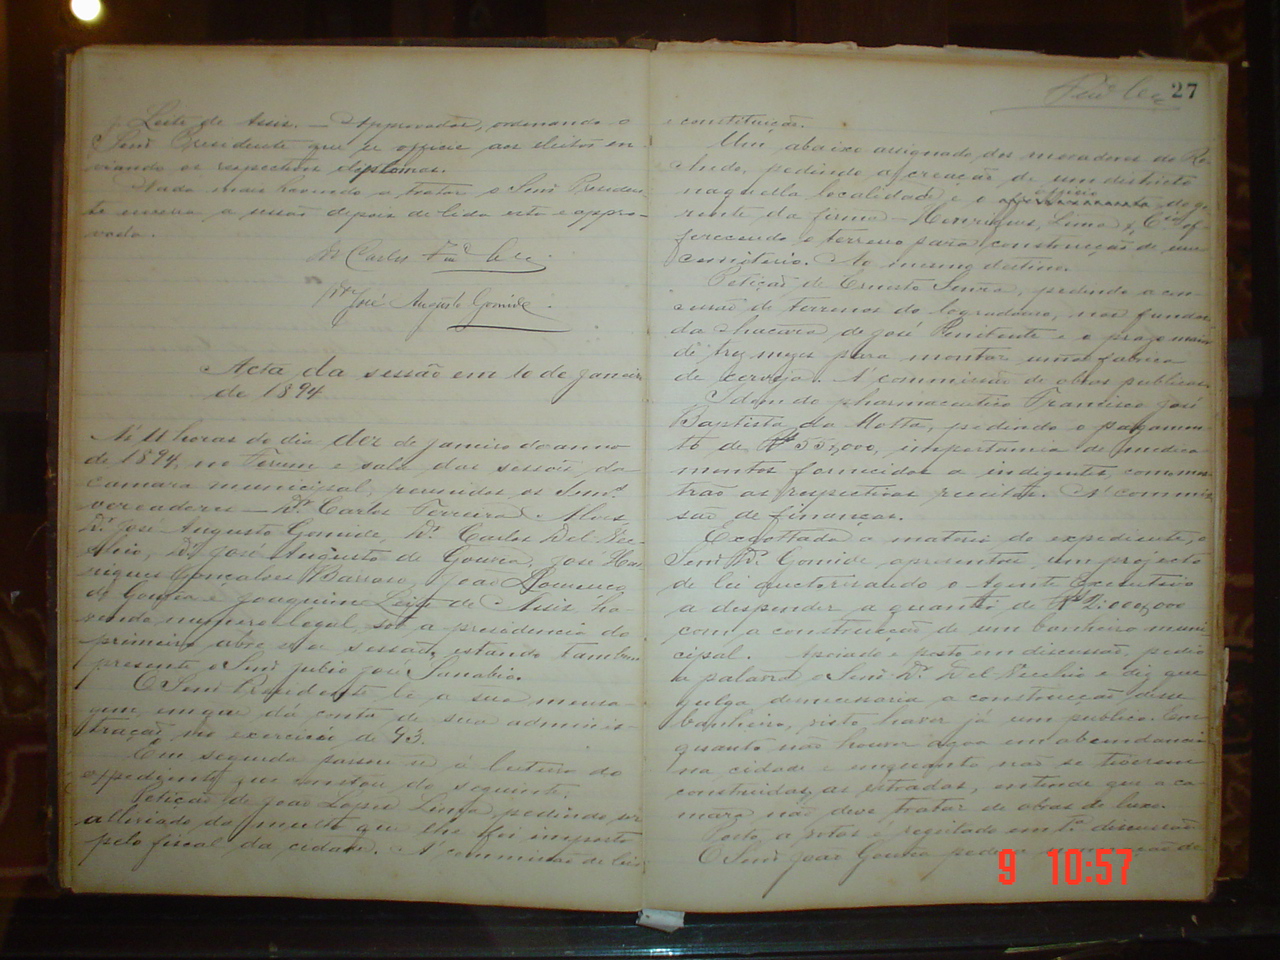 Leite de Assis. — Approvadas, ordenando o
Senr Presidente que se officie aos eleitos en-
viando os respectivos diplomas.
Nada mais havendo a tratar o Senr Presiden-
te encerra a sessão depois de lida esta e appro-
vada.
Dr Carlos
Dr José Augusto Gomide.
Acta da sessão em 10 de Janeiro
de 1894
A's 11 horas do dia dez de Janeiro do anno
de 1894, no Forum e sala das sessões da
camara municipal, reunidos os Senrs
vereadores — Dr. Carlos Ferreira Alves,
Dr José Augusto Gomide, Dr. Carlos Del-Vec-
chio, Dr José Augusto de Gouvêa, José Hen-
riques Gonçalves Barroso, João Lourenço
de Gouvêa e Joaquim Leite de Assis, ha-
vendo numero legal, sob a presidencia do
primeiro abre-se a sessão, estando tambem
presente o Senr Julio José Sanabio.
O Senr Presidente lê a sua mensa-
gem, em que dá conta de sua adminis-
tração, no exercicio de 93.
Em seguida passou-se á leitura do
expediente que constou do seguinte:
Petição de João Lopes pedindo ser
alliviado da multa que lhe foi imposta
pelo fiscal da cidade. A' commissão de leis
27
e constituição.
Um abaixo assignado dos moradores do Ro-
chedo, pedindo a creação de um districto
naquella localidade e o officio do ge-
rente da firma — Henriques, Lima & Cia of-
ferecendo o terreno para construcção de um
cemiterio. Ao mesmo destino.
Petição de Ernesto, pedindo a con-
cessão de terrenos do logradouro, nos fundos
da chacara de José Penitente e o prazo maior
de trez mezes para montar uma fabrica
de cerveja. A' commissão de obras publicas.
Idem do pharmaceutico Francisco José
Baptista da Motta, pedindo o pagamen-
to de Rs 55,000, importancia de medica-
mentos fornecidos a indigentes, como mos-
trão as respectivas receitas. A' commis-
são de finanças.
Exgottada a materia do expediente, o
Senr Dr. Gomide apresentou um projecto
de lei auctorisando o Agente Executivo
a despender a quantia de Rs 2:000,000
com a construcção de um banheiro muni-
cipal. Apoiado e posto em discussão, pedio
a palavra o Senr Dr. Del-Vecchio e diz que
julga desnecessaria a construcção desse
banheiro, visto haver já um publico. Em-
quanto não houver agoa em abundancia
na cidade e emquanto não se tiverem
construidas as estradas, entende que a ca-
mara não deve tratar de obras de luxo.
Posto a votos é regeitado em 1a discussão
O Senr João Gouvêa pede a nomeação de
9 10:57